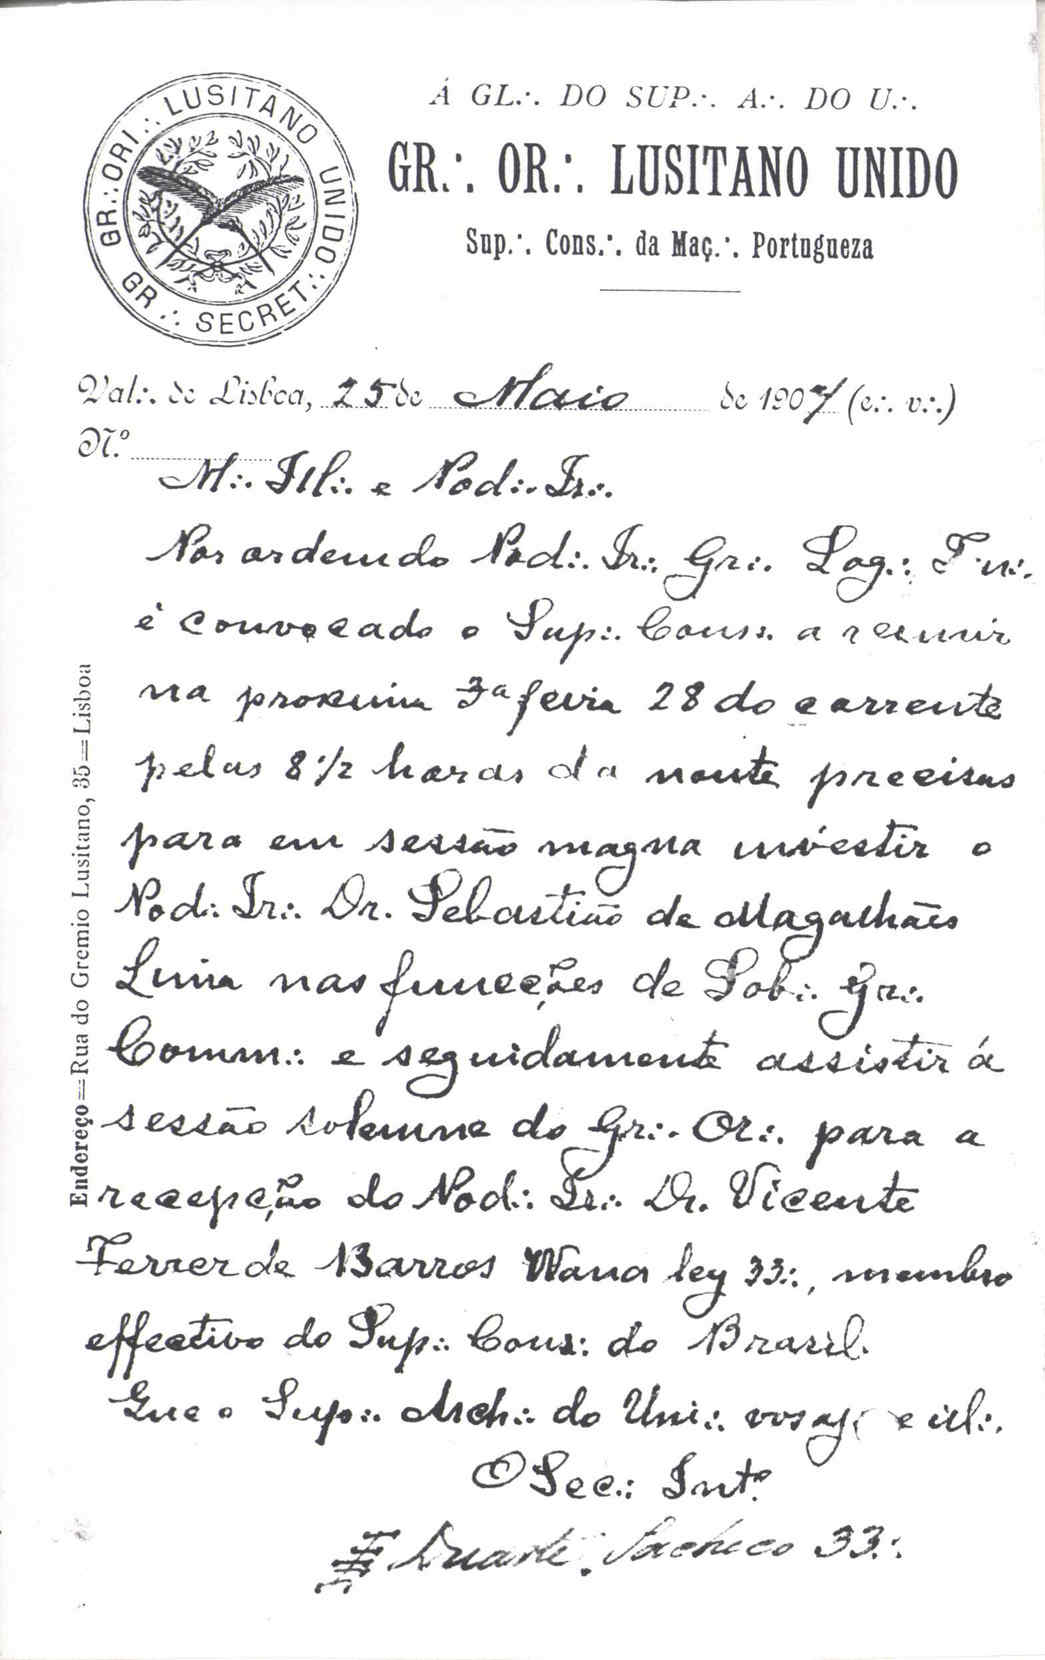 GR.·. ORI.·. LUSITANO UNIDO
GR.·. SECRET.·.
Á GL.·. DO SUP.·. A.·. DO U.·.
GR.·. OR.·. LUSITANO UNIDO
Sup.·. Cons.·. da Maç.·. Portugueza
Val.·. de Lisboa, 25 de Maio de 1907 (e.·. v.·.)
N.º
M.·. Ill.·. e Pod.·. Ir.·.
Por ordem do Pod.·. Ir.·. Gr.·. Log.·. T.·. n.·.
é convocado o Sup.·. Cons.·. a reunir
na proxima 3ª feira 28 do corrente
pelas 8 1/2 horas da noute precisas
para em sessão magna investir o
Pod.·. Ir.·. Dr. Sebastião de Magalhães
Lima nas funcções de Sob.·. Gr.·.
Comm.·. e seguidamente assistir á
sessão solemne do Gr.·. Or.·. para a
recepção do Pod.·. Ir.·. Dr. Vicente
Ferrer de Barros Wand ley 33.·., membro
effectivo do Sup.·. Cons.·. do Brasil.
Que o Sup.·. Arch.·. do Uni.·. vos aj e ill.·.
O Sec.·. Intº
Duarte Pacheco 33.·.
Endereço=Rua do Gremio Lusitano, 35=Lisboa